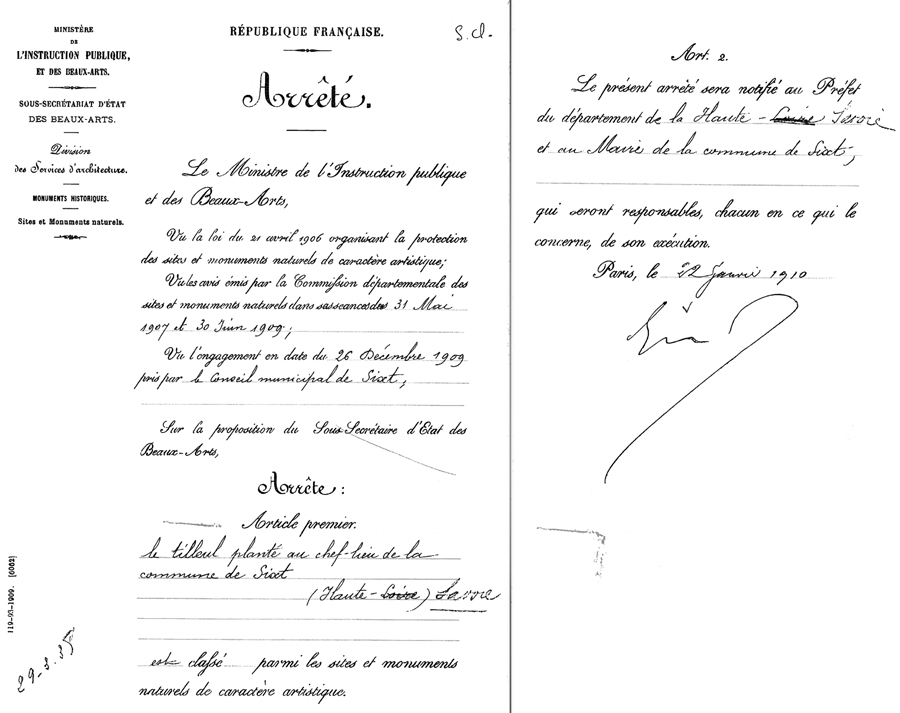 MINISTÈRE
DE
L'INSTRUCTION PUBLIQUE,
ET DES BEAUX-ARTS.
SOUS-SECRÉTARIAT D'ÉTAT
DES BEAUX-ARTS.
Division
des Services d'architecture.
MONUMENTS HISTORIQUES.
Sites et Monuments naturels.
RÉPUBLIQUE FRANÇAISE.
S. Cl.
Arrêté.
Le Ministre de l'Instruction publique
et des Beaux-Arts,
Vu la loi du 21 avril 1906 organisant la protection
des sites et monuments naturels de caractère artistique;
Vu les avis émis par la Commission départementale des
sites et monuments naturels dans sa séances des 31 Mai
1907 et 30 Juin 1909;
Vu l'engagement en date du 26 Décembre 1909
pris par le Conseil municipal de Sixt,
Sur la proposition du Sous-Secrétaire d'État des
Beaux-Arts,
Arrête:
Article premier.
le tilleul planté au chef-lieu de la
commune de Sixt
(Haute-Loire) Savoie
est classé parmi les sites et monuments
naturels de caractère artistique.
119-93-1909. [6003]
29_3.35
Art. 2.
Le présent arrêté sera notifié au Préfet
du département de la Haute-Loire Savoie
et au Maire de la commune de Sixt,
qui seront responsables, chacun en ce qui le
concerne, de son exécution.
Paris, le 22 Janvier 1910